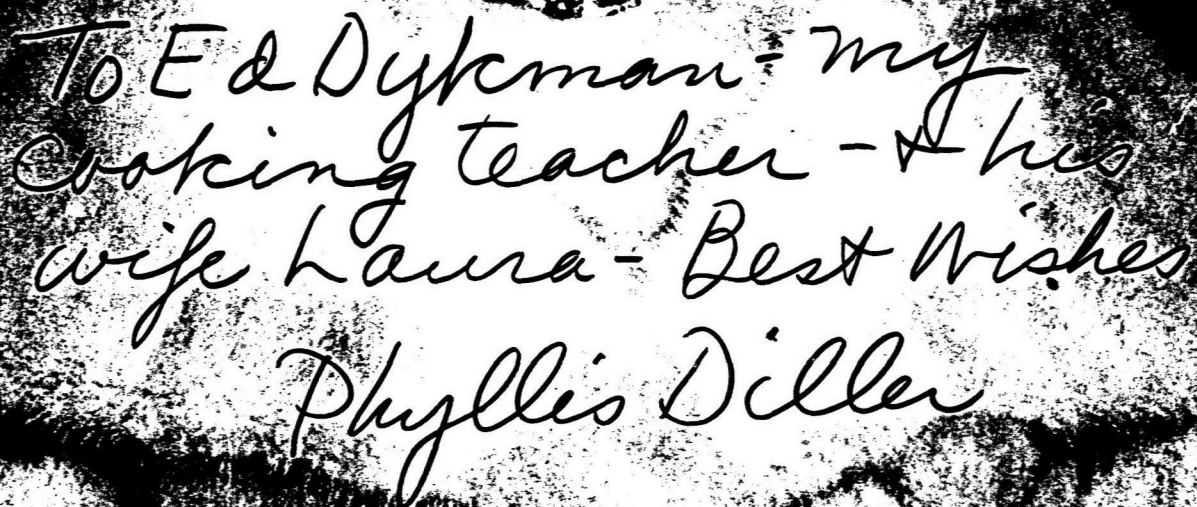 To Ed Dykman - my
cooking teacher - & his
wife Laura - Best Wishes
Phyllis Diller